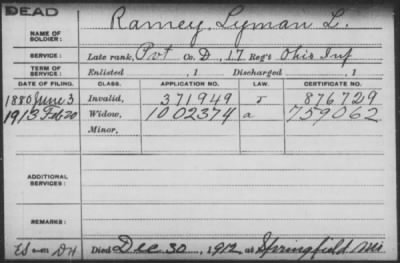 DEAD
NAME OF SOLDIER: Ramey, Lyman L.
SERVICE: Late rank, Pvt Co. D, 17 Reg't Ohio Inf
TERM OF SERVICE: Enlisted , 1 Discharged , 1
DATE OF FILING. CLASS. APPLICATION NO. LAW. CERTIFICATE NO.
1880 June 3 Invalid, 371949 876729
1913 Feb 20 Widow, 1002374 a 759062
Minor,
ADDITIONAL SERVICES:
REMARKS:
Died Dec 30, 1912 at Springfield Mo